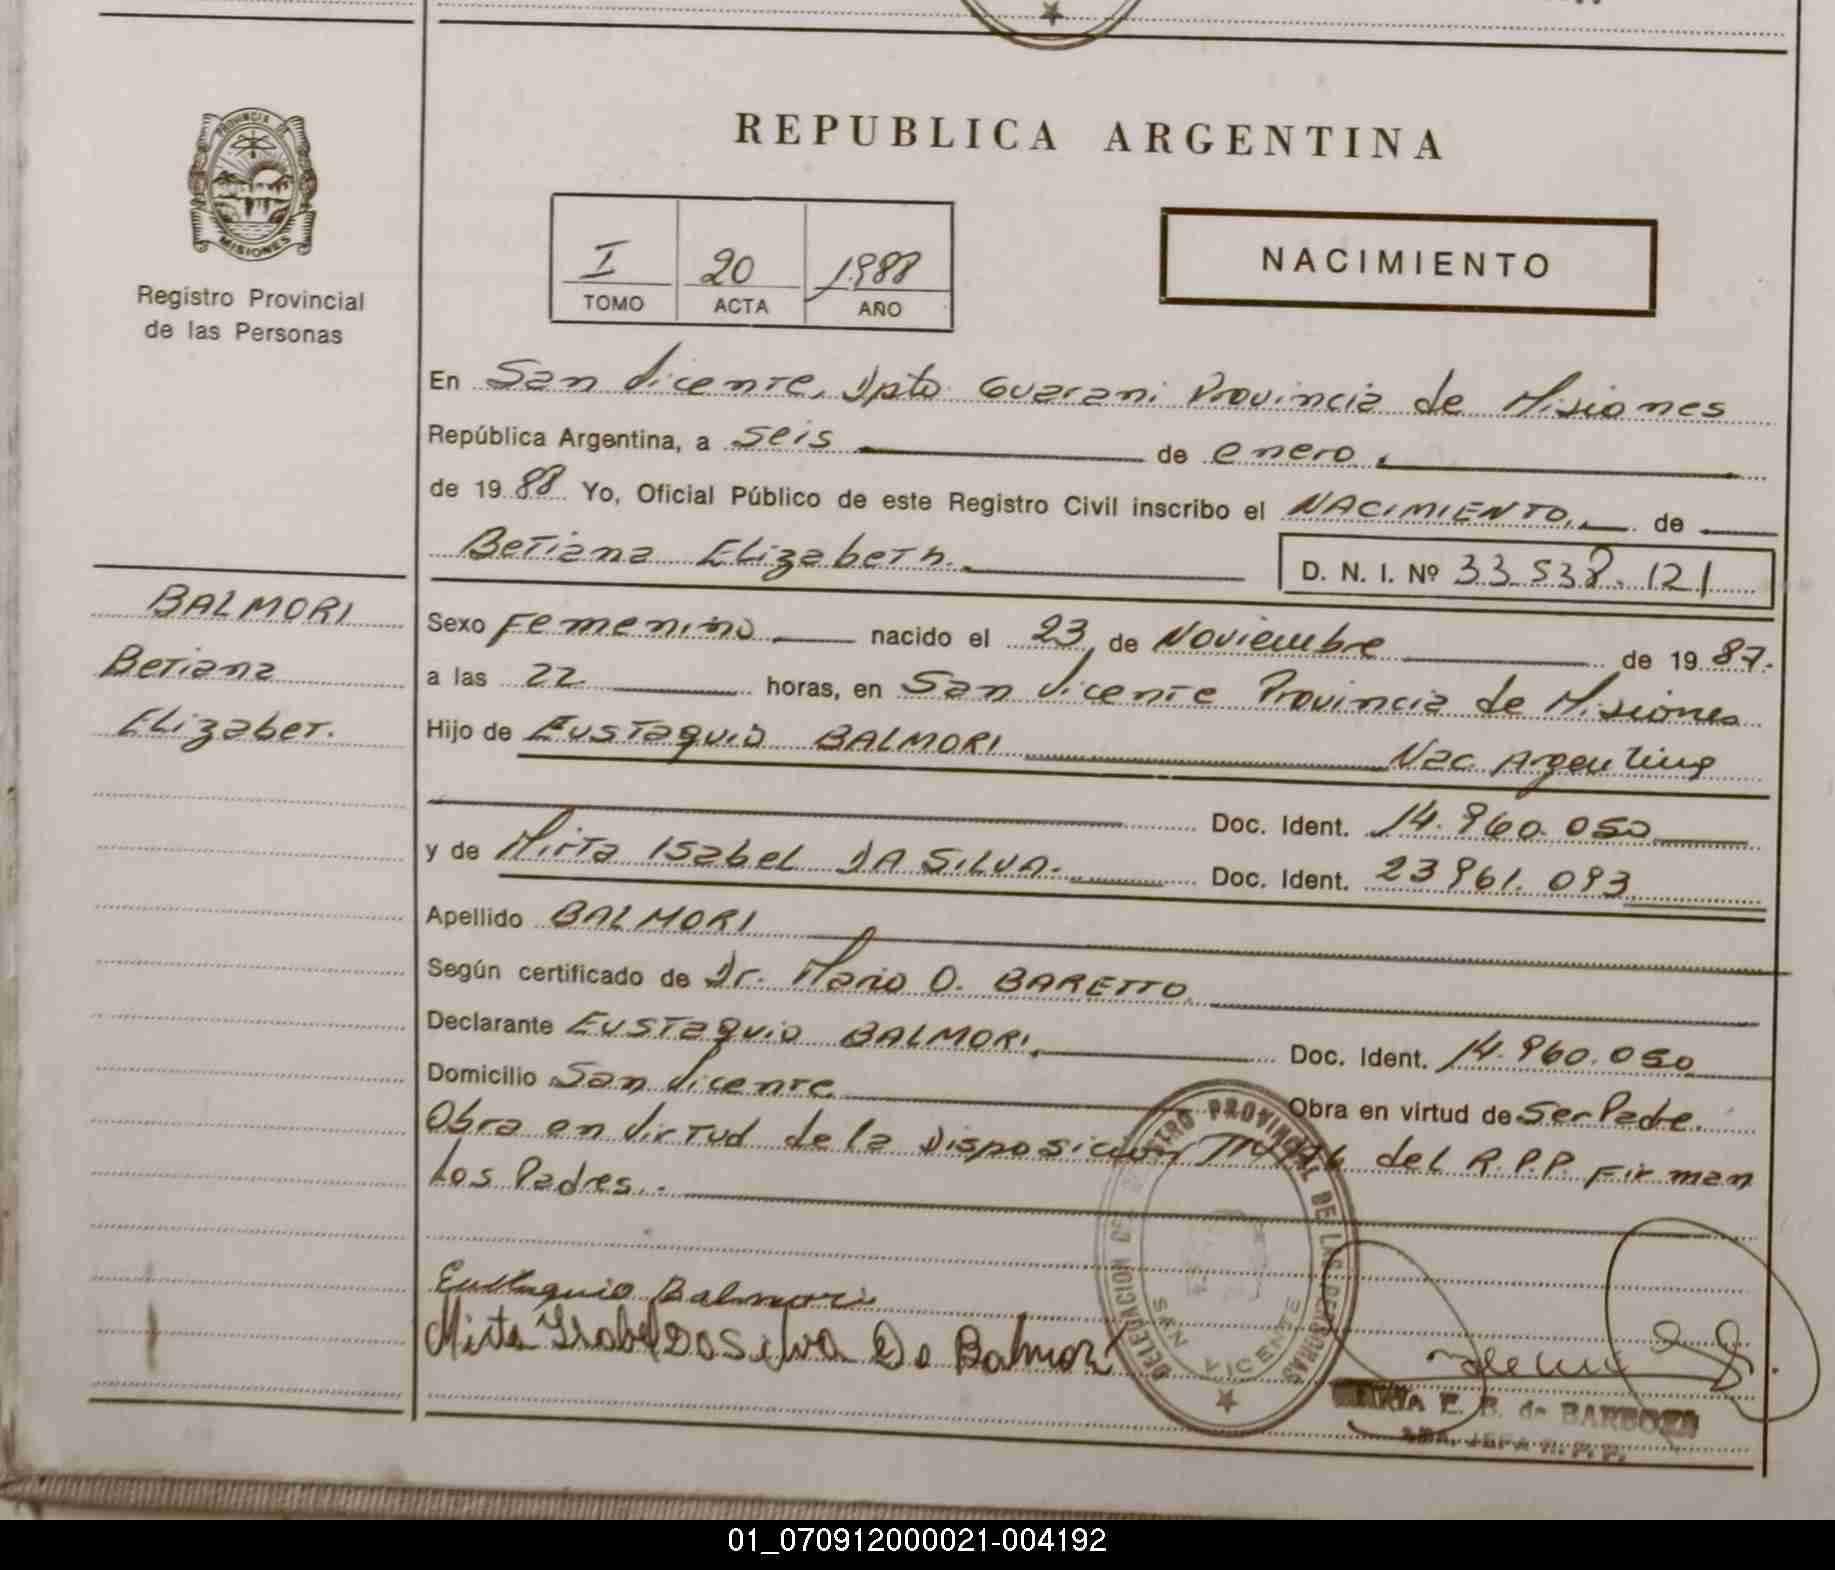 REPUBLICA ARGENTINA
PROVINCIA DE
MISIONES
Registro Provincial
de las Personas
I 20 1988
TOMO ACTA AÑO
NACIMIENTO
En San Vicente, Dpto Guarani Provincia de Misiones
República Argentina, a seis de enero.
de 1988 Yo, Oficial Público de este Registro Civil inscribo el NACIMIENTO de
Betiana Elizabeth. D. N. I. Nº 33.538.121
BALMORI
Betiana
Elizabet.
Sexo Femenino nacido el 23 de Noviembre de 1987.
a las 22 horas, en San Vicente Provincia de Misiones
Hijo de Eustaquio BALMORI Nac. Argentina
Doc. Ident. 14.960.050
y de Mirta Isabel DA SILVA. Doc. Ident. 23961.093
Apellido BALMORI
Según certificado de Dr. Mario O. BARETTO
Declarante Eustaquio BALMORI. Doc. Ident. 14.960.050
Domicilio San Vicente Obra en virtud de Ser Padre.
Obra en virtud de la Disposición del R.P.P. Firman
Los Padres.
Eustaquio Balmori
Mirta Isabel Da Silva De Balmori
DELEGACION DEL REGISTRO PROVINCIAL DE LAS PERSONAS
SAN VICENTE
MARIA E. B. de BARBOZA
JEFA R. P. P.
01_070912000021-004192